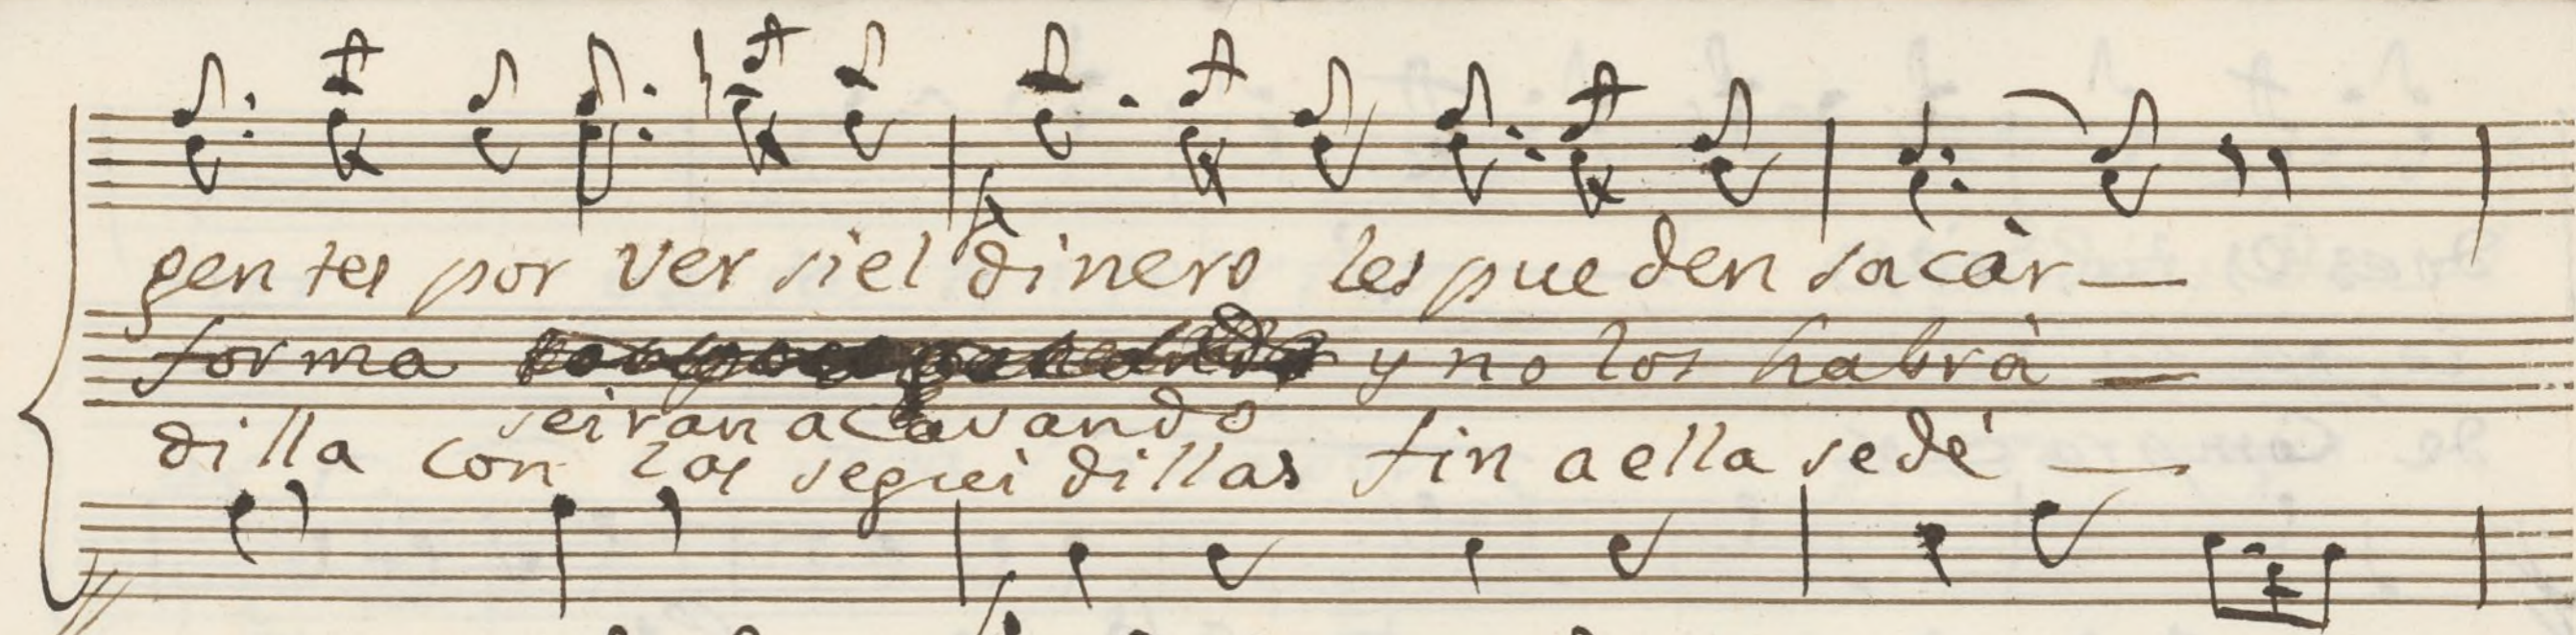 gentes por ver siel dinero les pueden sacàr
forma y no los habrà
seiran acavando
dilla con las seguidillas fin a ella sedé